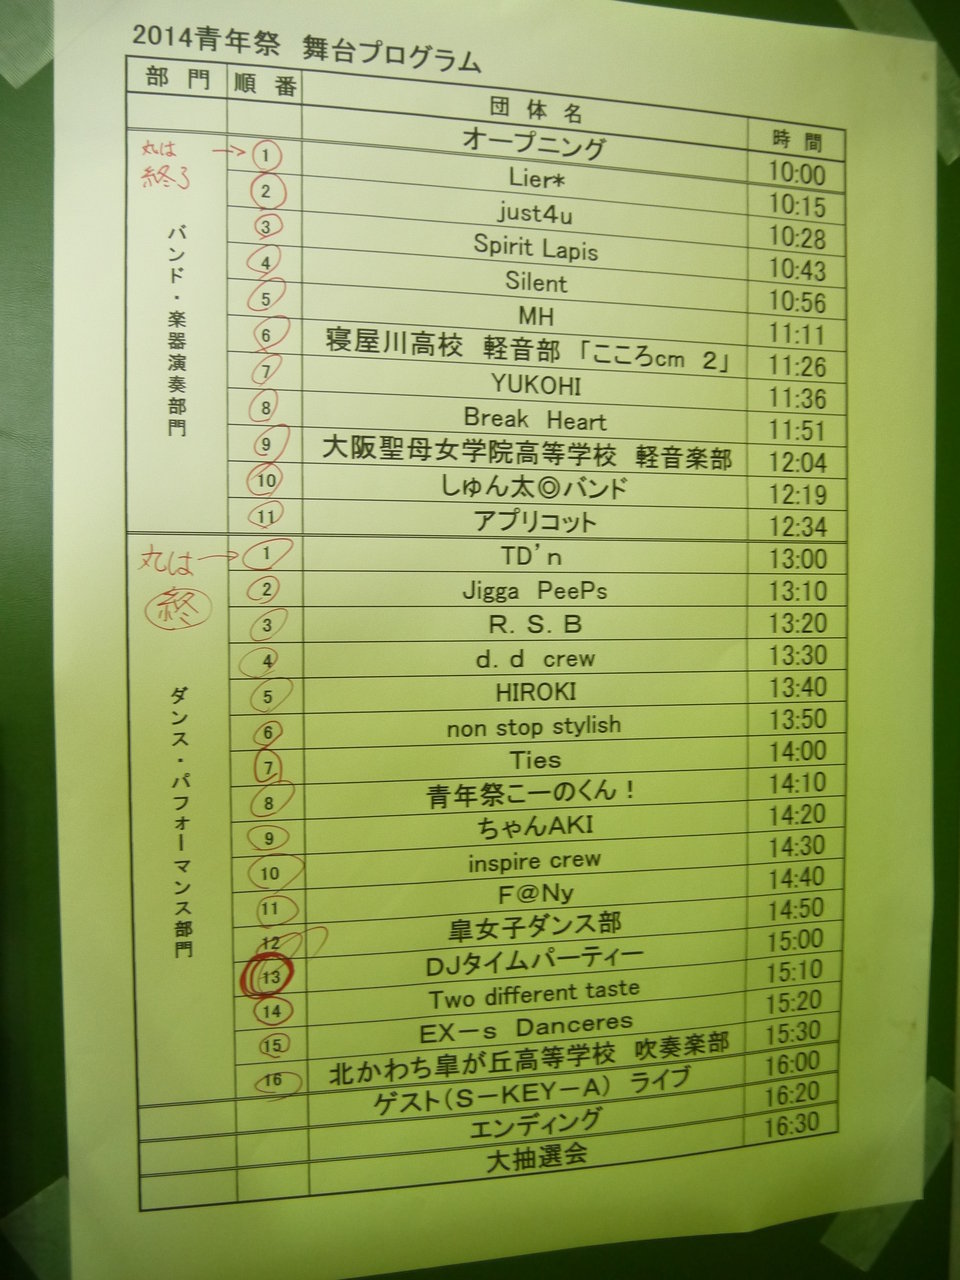 2014青年祭 舞台プログラム
部門 順番 団体名 時間
オープニング 10:00
丸は→ 1 Lier* 10:15
終了 2 just4u 10:28
3 Spirit Lapis 10:43
4 Silent 10:56
5 MH 11:11
6 寝屋川高校 軽音部 「こころcm 2」 11:26
7 YUKOHI 11:36
8 Break Heart 11:51
9 大阪聖母女学院高等学校 軽音楽部 12:04
10 しゅん太◎バンド 12:19
11 アプリコット 12:34
バンド・楽器演奏部門
丸は→ 1 TD'n 13:00
終 2 Jigga PeePs 13:10
3 R.S.B 13:20
4 d.d crew 13:30
5 HIROKI 13:40
6 non stop stylish 13:50
7 Ties 14:00
8 青年祭こーのくん! 14:10
9 ちゃんAKI 14:20
10 inspire crew 14:30
11 F@Ny 14:40
12 皐女子ダンス部 14:50
13 DJタイムパーティー 15:00
14 Two different taste 15:10
15 EX-s Danceres 15:20
16 北かわち皐が丘高等学校 吹奏楽部 15:30
ダンス・パフォーマンス部門
ゲスト(S-KEY-A) ライブ 16:00
エンディング 16:20
大抽選会 16:30